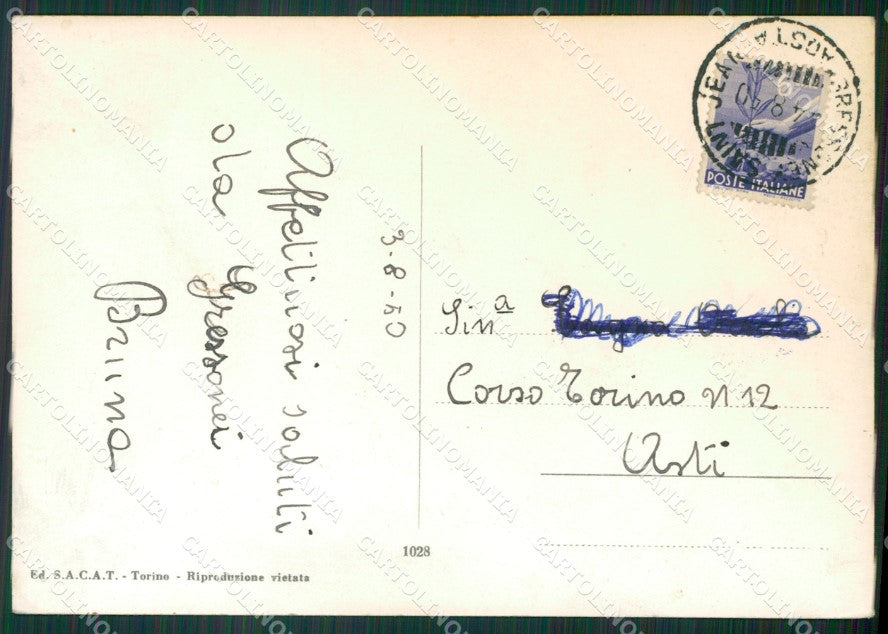 Affettuosi saluti
da Gressonei
Bruna
3-8-50
SAINT JEAN AOSTA
POSTE ITALIANE
Sin a
Corso Torino N 12
Asti
1028
Ed. S.A.C.A.T. - Torino - Riproduzione vietata
CARTOLINOMANIA